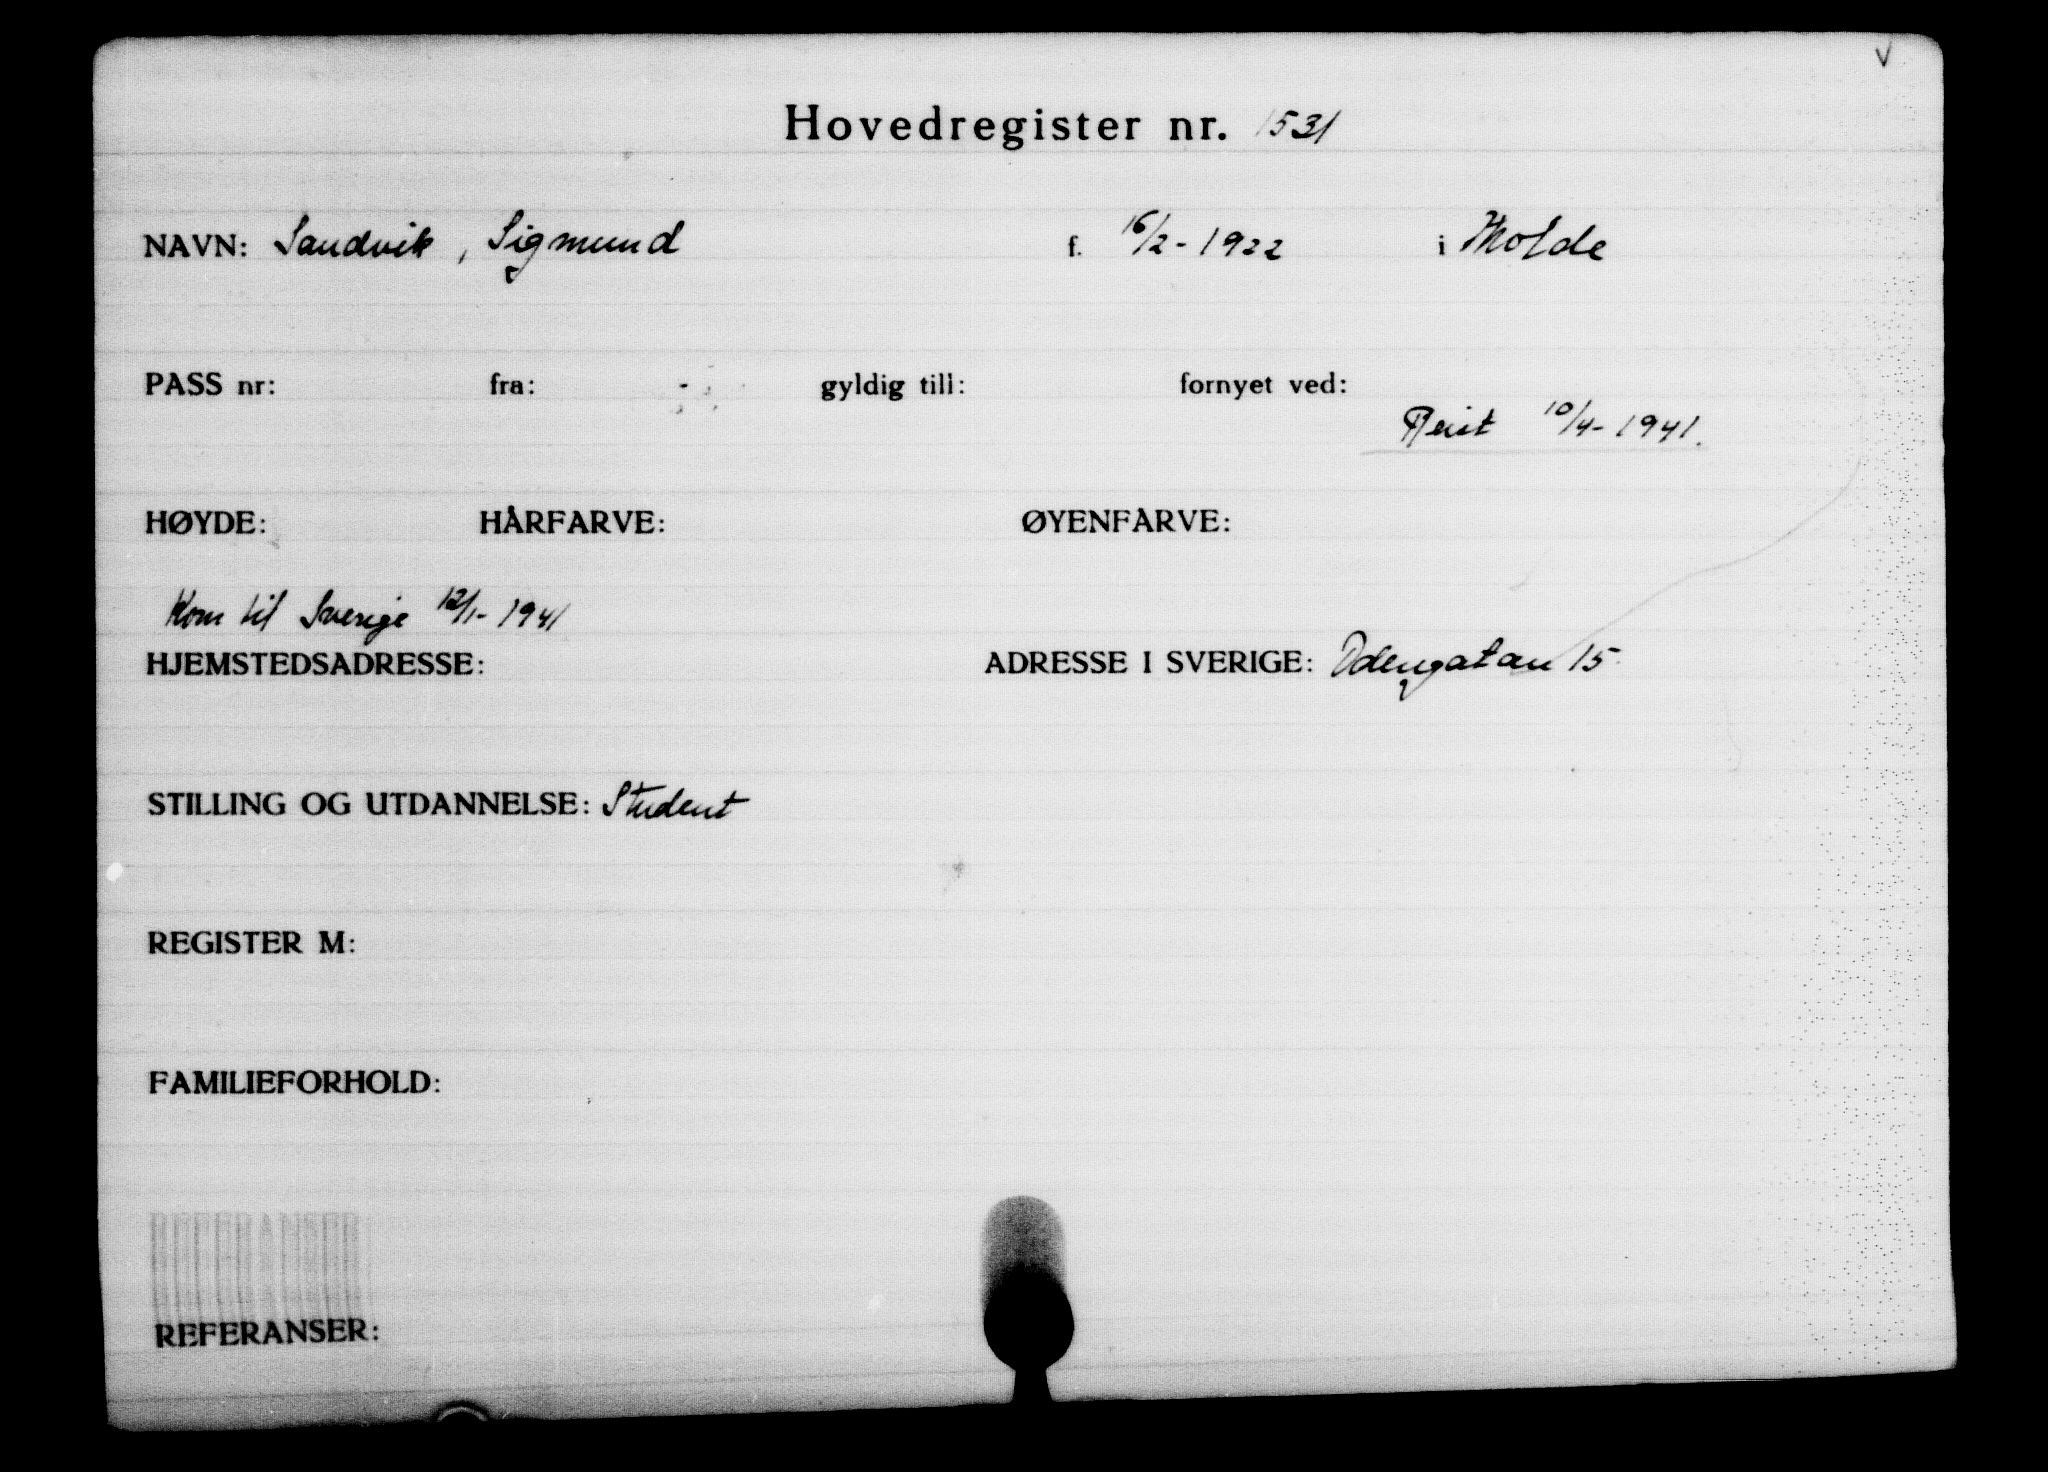 V
Hovedregister nr. 1531
NAVN: Sandvik, Sigmund f. 16/2-1922 i Molde
PASS nr: fra: gyldig till: fornyet ved:
Reist 10/4-1941.
HØYDE: HÅRFARVE: ØYENFARVE:
Kom til Sverige 12/1-1941
HJEMSTEDSADRESSE: ADRESSE I SVERIGE: Odengatan 15
STILLING OG UTDANNELSE: Student
REGISTER M:
FAMILIEFORHOLD:
REFERANSER: